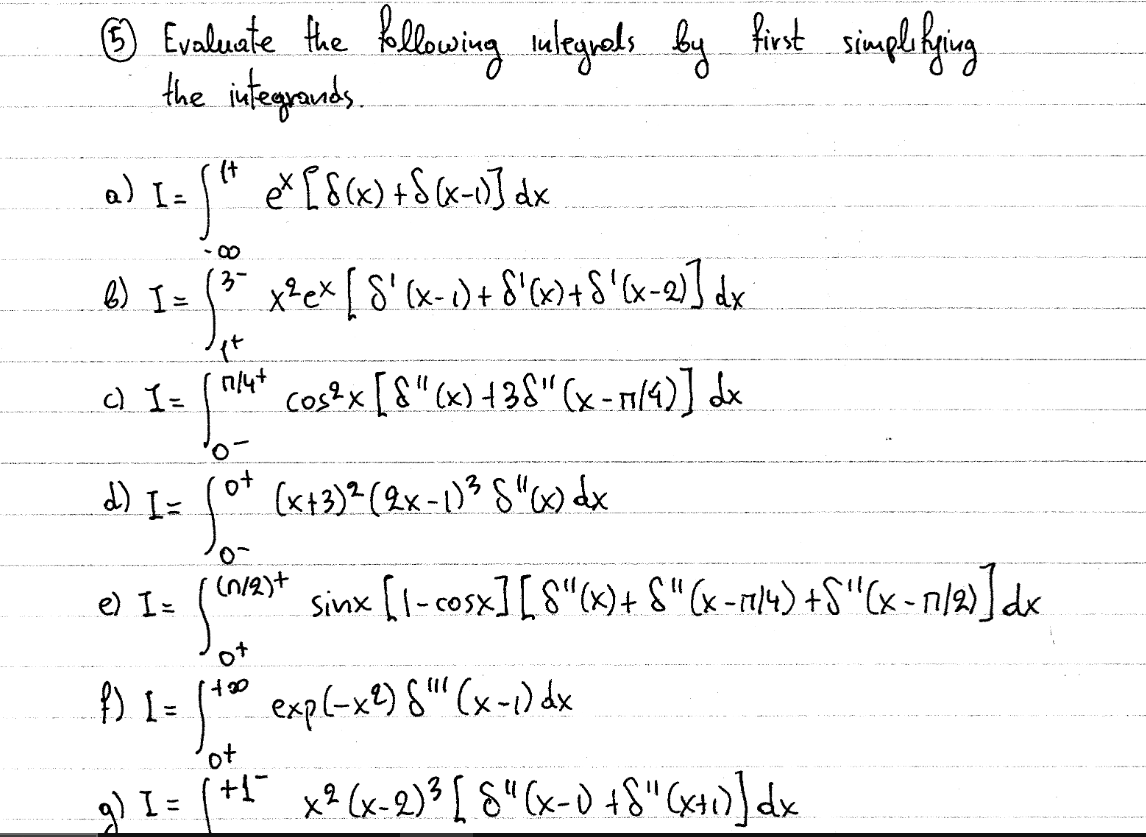 ⑤ Evaluate the following integrals by first simplifying
the integrands.
a) I = ∫_{-∞}^{1+} e^x [δ(x) + δ(x-1)] dx
b) I = ∫_{1+}^{3-} x²e^x [δ'(x-1) + δ'(x) + δ'(x-2)] dx
c) I = ∫_{0-}^{π/4+} cos²x [δ''(x) + 3δ''(x-π/4)] dx
d) I = ∫_{0-}^{0+} (x+3)²(2x-1)³ δ''(x) dx
e) I = ∫_{0+}^{(π/2)+} sinx [1-cosx] [δ''(x) + δ''(x-π/4) + δ''(x-π/2)] dx
f) I = ∫_{0+}^{+∞} exp(-x²) δ'''(x-1) dx
g) I = ∫^{+1-} x²(x-2)³ [δ''(x-1) + δ''(x+1)] dx